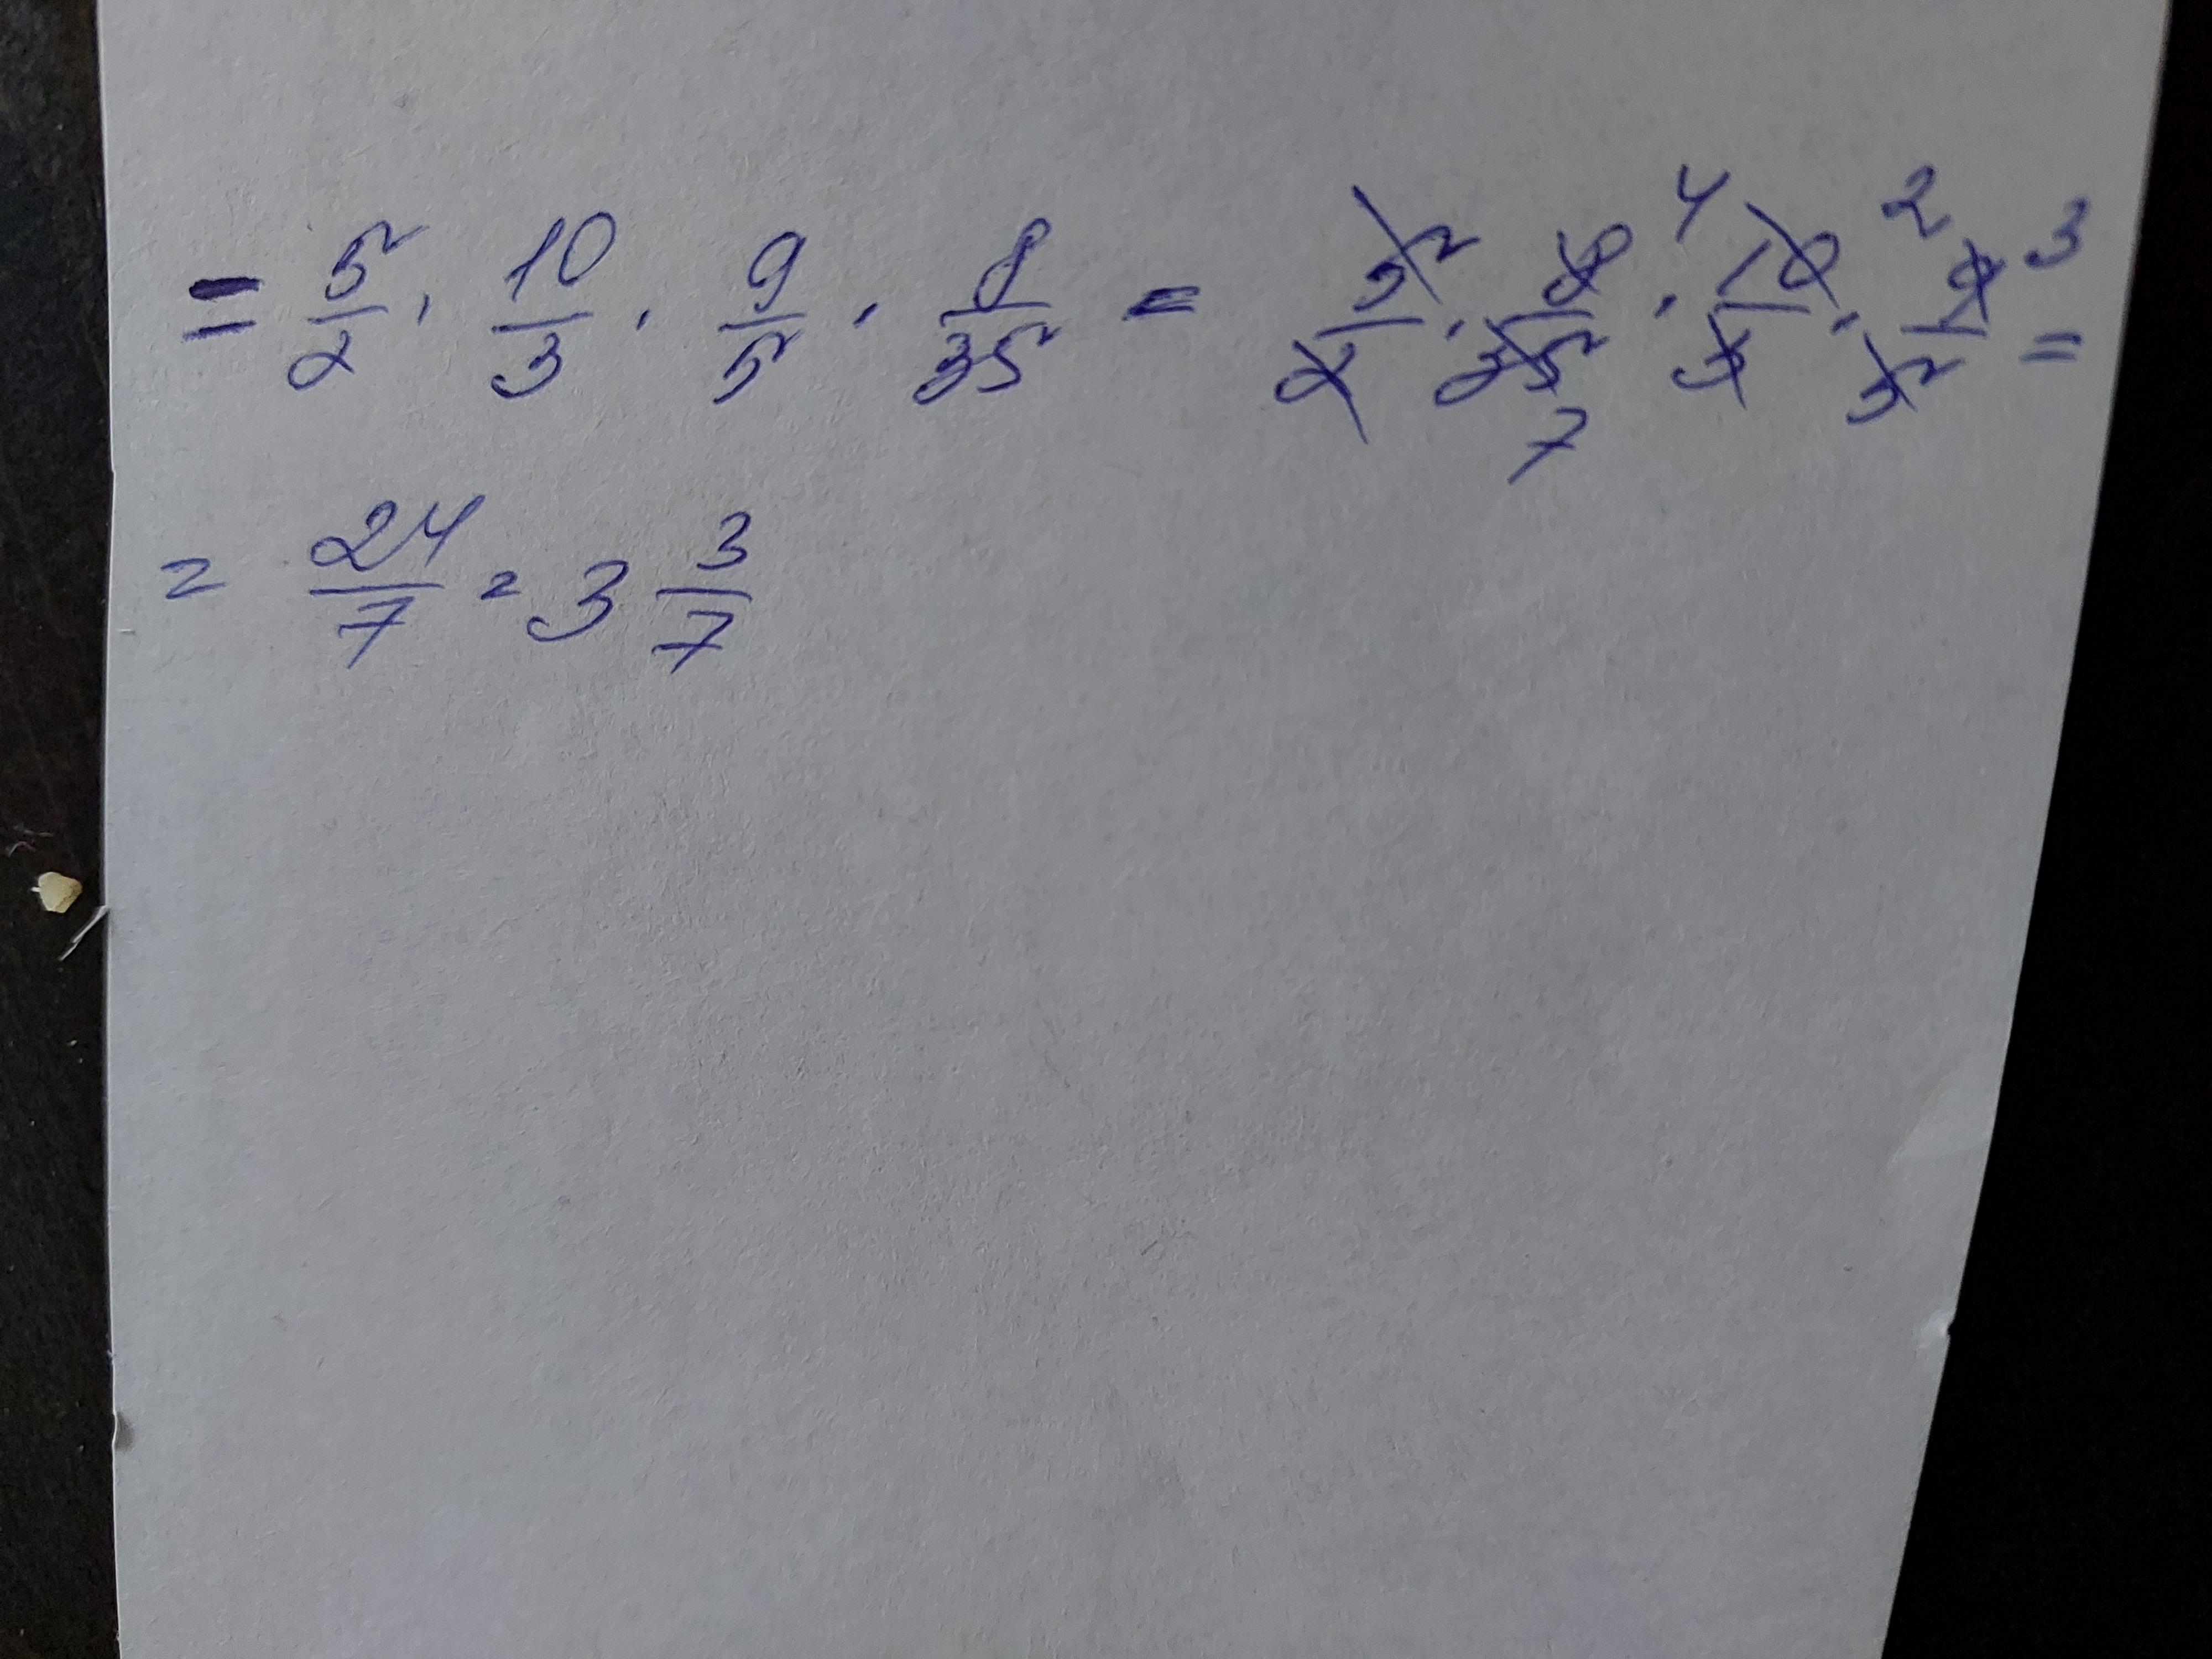 = 5/2 · 10/3 · 9/5 · 8/35 = 5/2 · 8/35 4 7 · 10/3 2 · 9/5 3 =
= 24/7 = 3 3/7